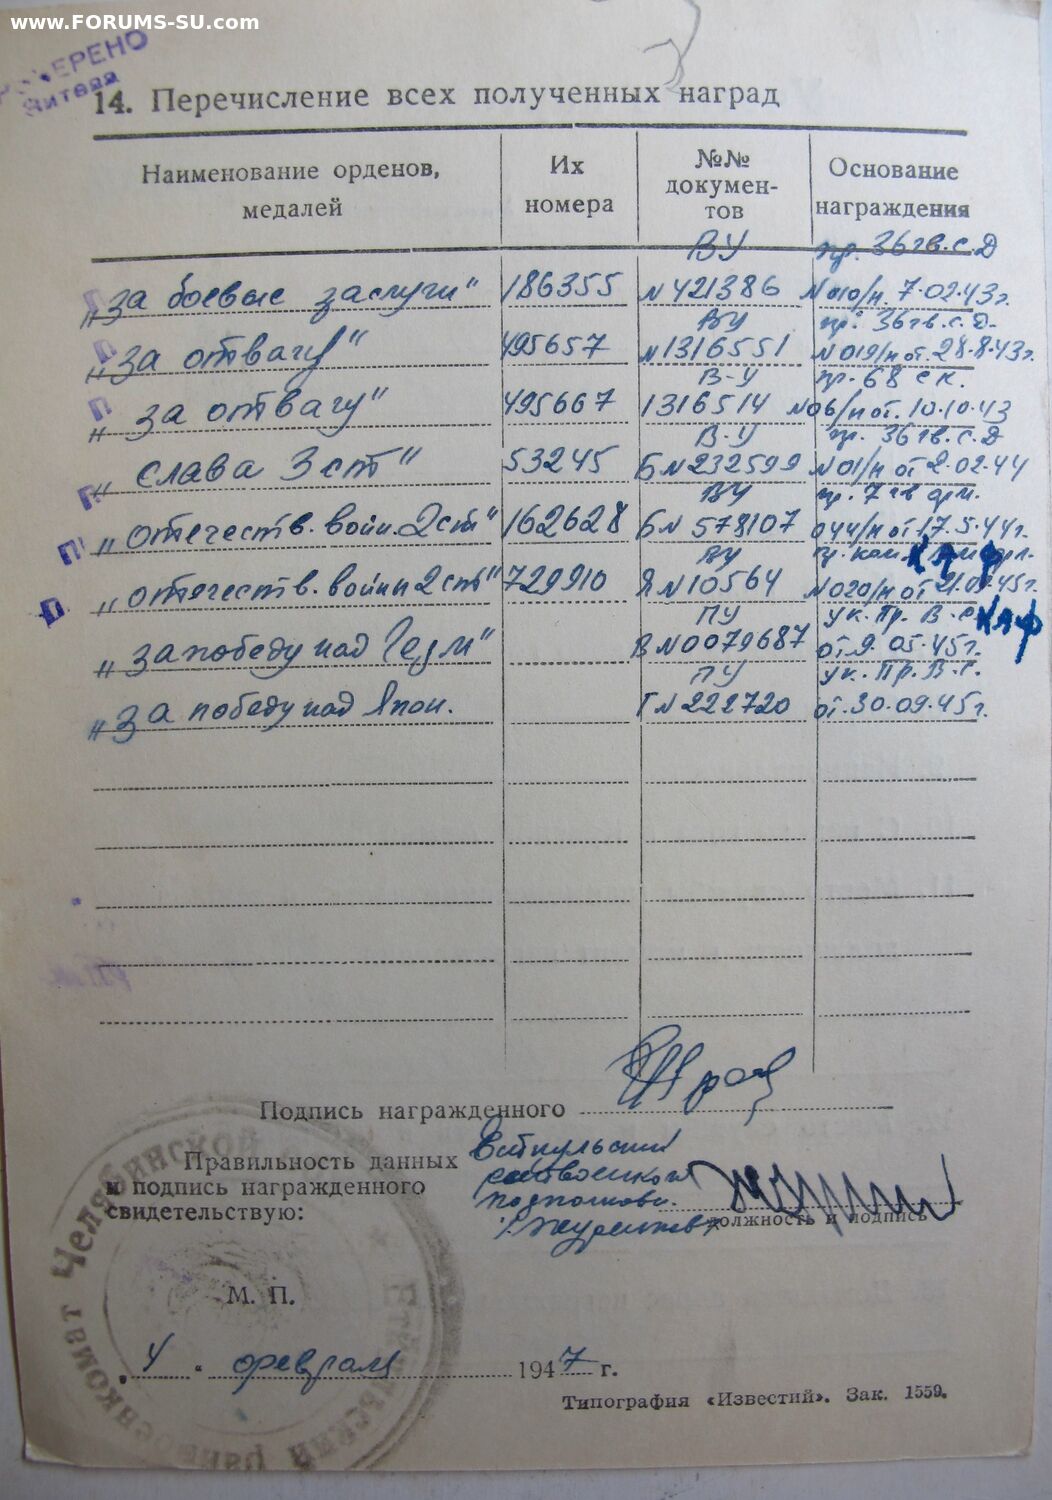 www.FORUMS-SU.com
14. Перечисление всех полученных наград
Наименование орденов, медалей
Их номера
№№ документов
Основание награждения
„за боевые заслуги" 186355 ВУ №421386 пр. 36гв.с.д №010/н. 7.02.43г.
„за отвагу" 495657 ВУ №1316551 пр. 36гв.с.д. №019/н от. 28.8.43г.
„за отвагу" 495667 В-У 1316514 пр. 68 ск. №06/н от. 10.10.43
„слава 3 ст" 53245 В-У Б№232599 пр. 36гв.с.д №01/н от 2.02.44
„отечеств. войн. 2ст" 162628 ВУ Б№578107 пр. 7 гв арм. 044/н от 17.5.44г.
„отечеств. войны 2ст" 729910 ВУ Я№10564 №020/н от
КАФ
„за победу над Герм" ПУ В№0079687 ук. Пр. В.С. от 9.05.45г.
КАФ
„за победу над Япон. ПУ Г№222720 ук. Пр. В.С. от 30.09.45г.
Подпись награжденного
Правильность данных
и подпись награжденного
свидетельствую:
подполковн.
должность и подпись
М. П.
„4" февраля 1947 г.
Типография «Известий». Зак. 1559.
Челябинской